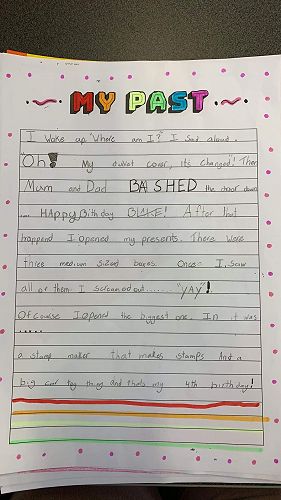 MY PAST
I Woke up. "Where am I?" I Said aloud.
Oh! My duvet cover, its changed! Then
Mum and Dad BASHED the door down
.... HAppy Birthday BLAKE! After that
happend I opened my presents. There were
three medium sized boxes. Once I saw
all or them I screamed out....... "YAY"!
Of course I opened the biggest one. In it was
.....
a stamp maker that makes stamps And a
big car toy thing and thats my 4th birthday!